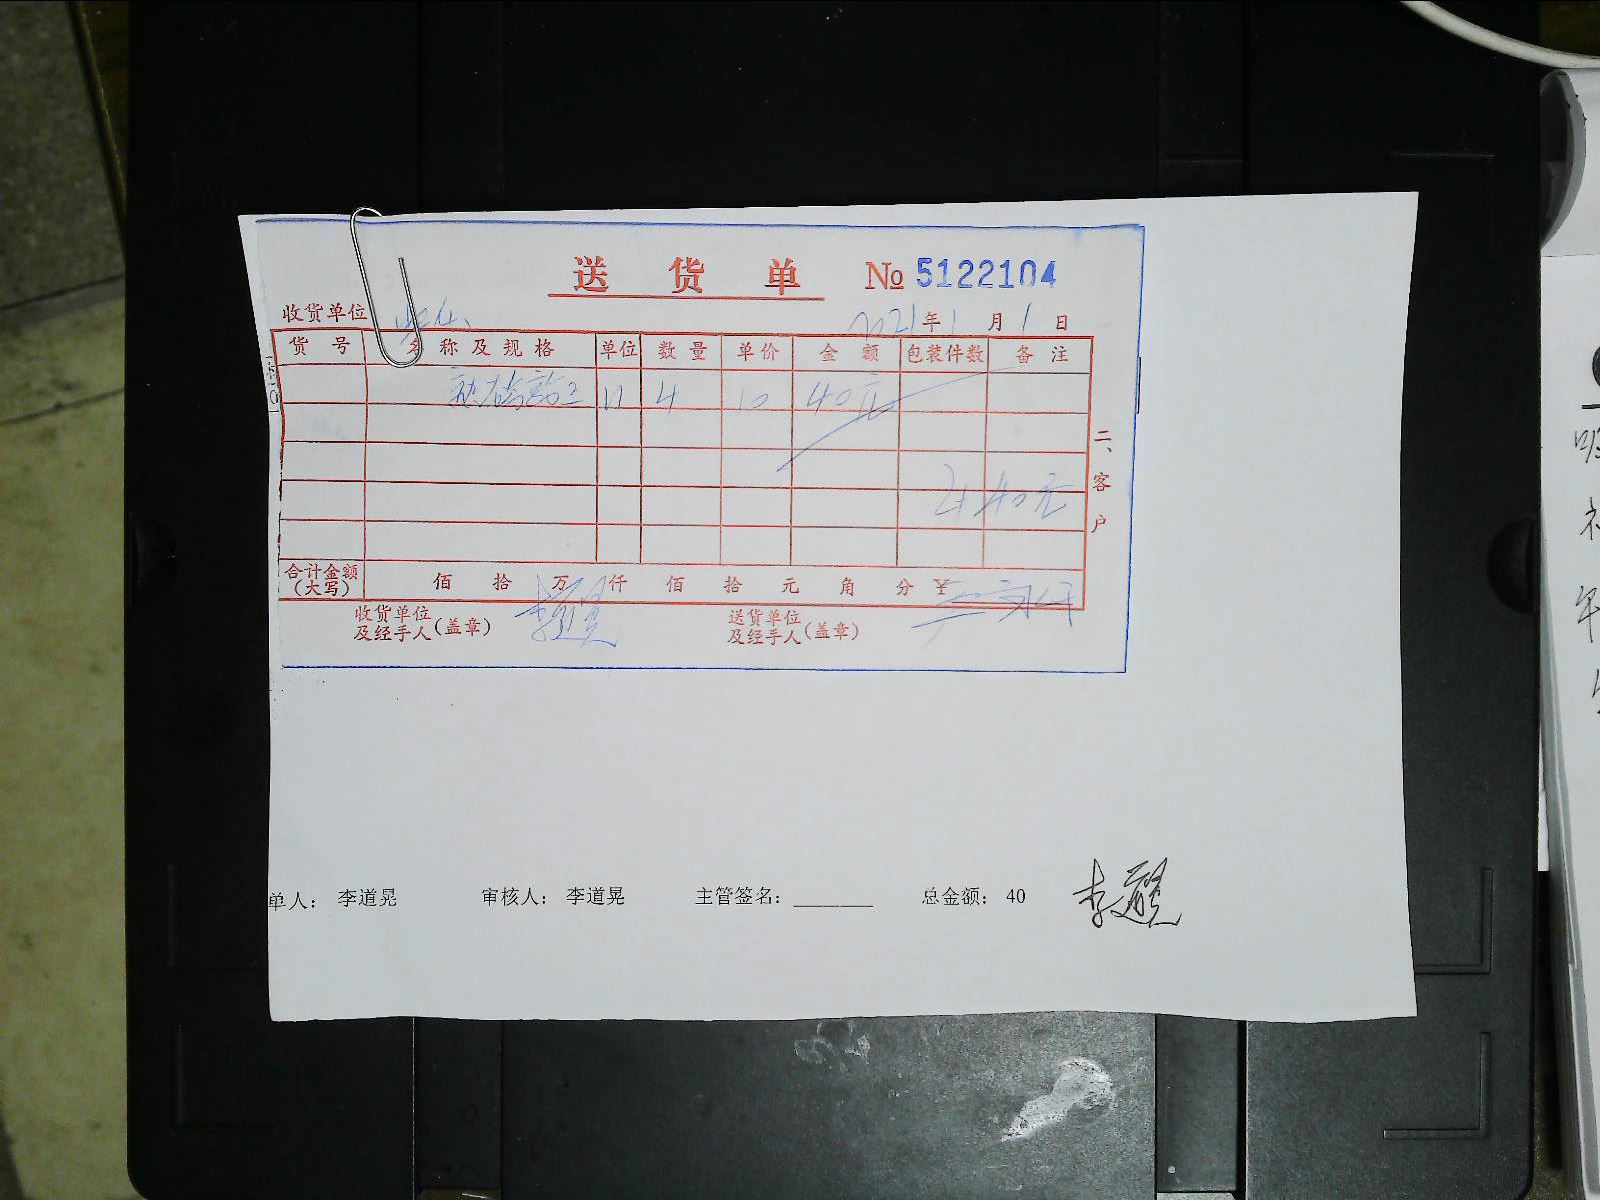 送货单 № 5122104
收货单位 2021年1月1日
货号 名称及规格 单位 数量 单价 金额 包装件数 备注
4 10 40元
40元
二、客户
合计金额(大写) 佰拾万仟佰拾元角分¥
收货单位及经手人(盖章) 李道晃 送货单位及经手人(盖章)
单人： 李道晃 审核人： 李道晃 主管签名：_______ 总金额： 40 李道晃